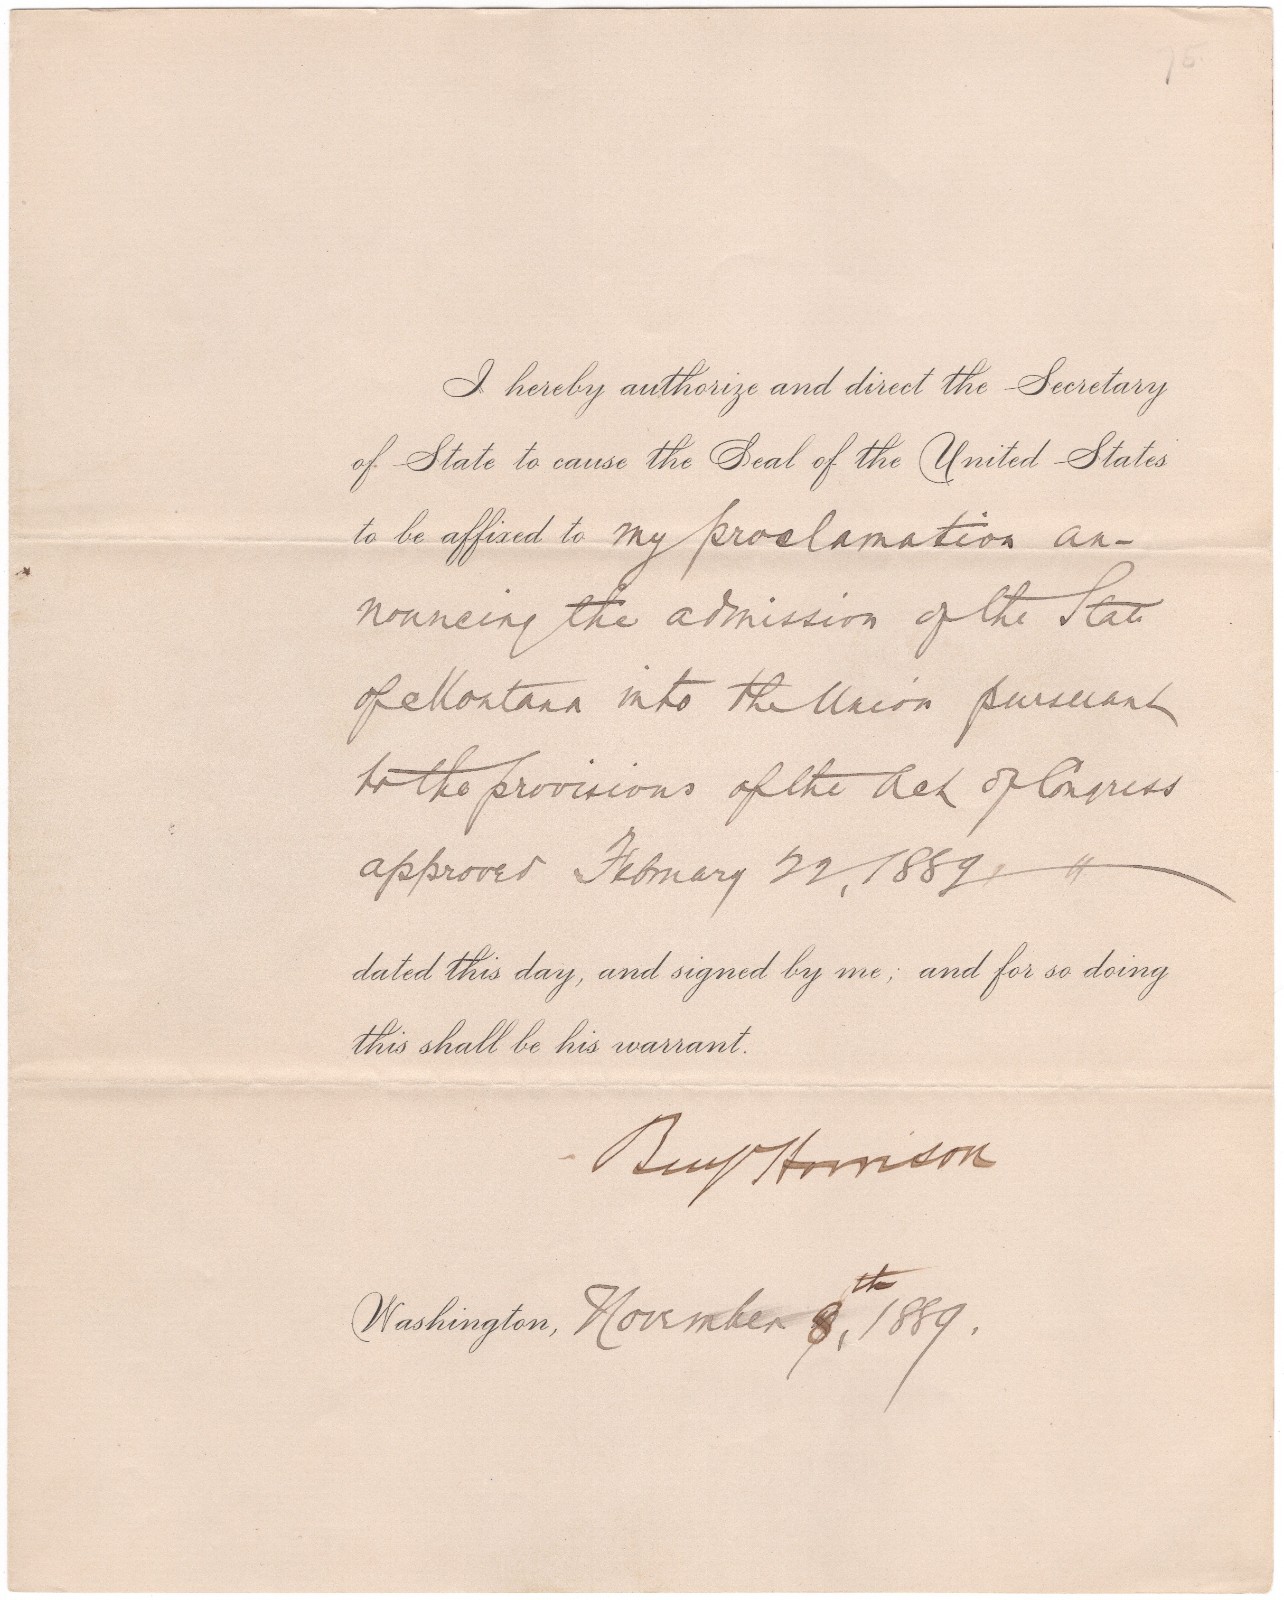 75
I hereby authorize and direct the Secretary
of State to cause the Seal of the United States
to be affixed to my proclamation an-
nouncing the admission of the State
of Montana into the Union pursuant
to the provisions of the Act of Congress
approved February 22, 1889,
dated this day, and signed by me; and for so doing
this shall be his warrant.
Benj Harrison
Washington, November 8th, 1889.